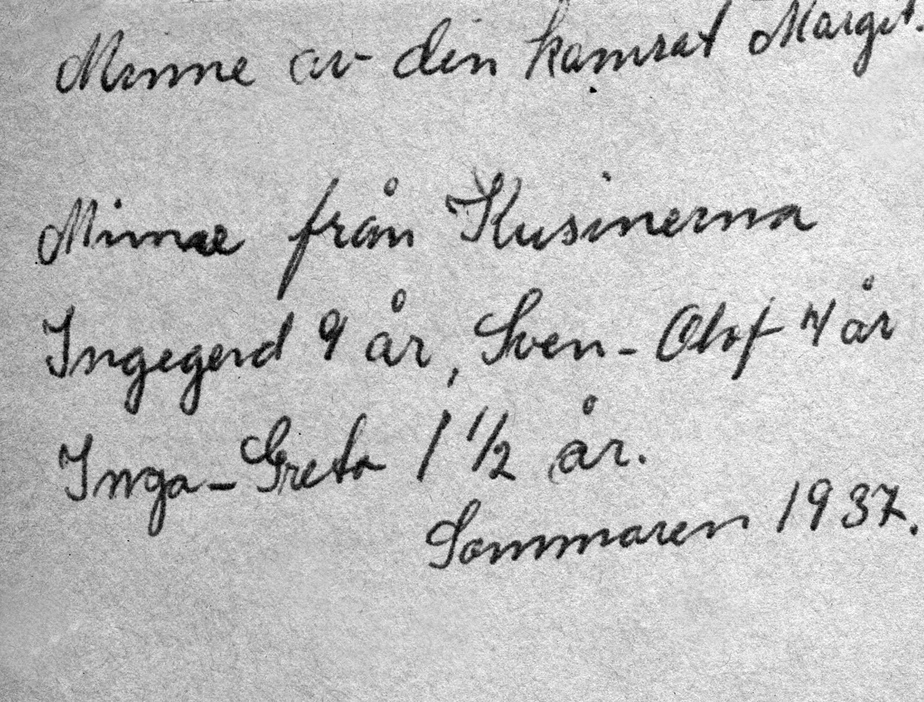 Minne av din kamrat Margit.
Minne från Kusinerna
Ingegerd 9 år, Sven-Olof 4 år
Inga-Greta 1 1/2 år.
Sommaren 1937.